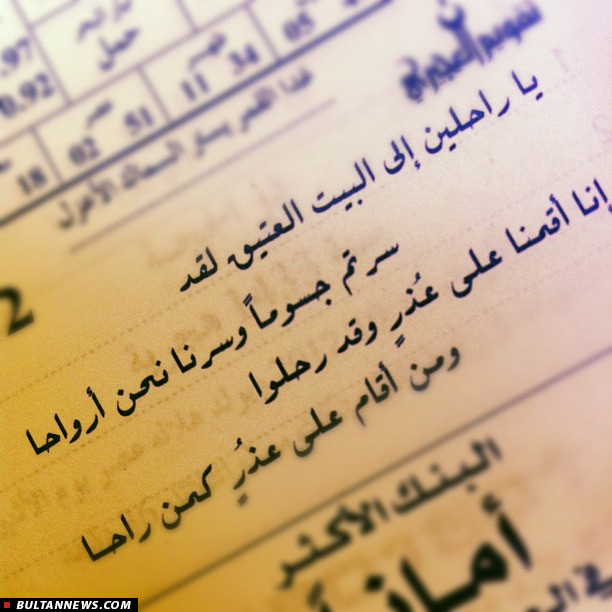 .97
0.92
حمل
05
ظهر
11 34
عصر
02 51
18
تقويم العجيري
يا راحلين إلى البيت العتيق لقد
سرتم جسوماً وسرنا نحن أرواحا
إنا أقمنا على عُذرٍ وقد رحلوا
ومن أقام على عذرٍ كمن راحا
2
البنك الأكثر
أماناً
في
BULTANNEWS.COM